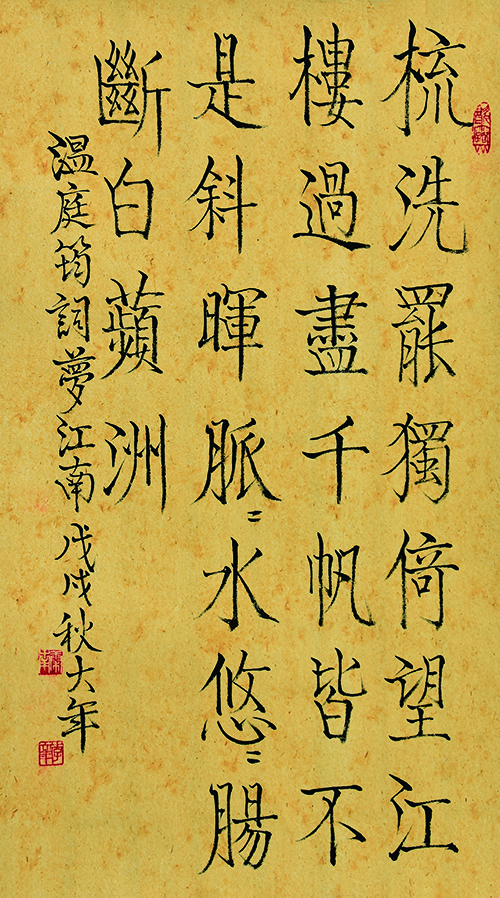 梳洗罷獨倚望江
樓過盡千帆皆不
是斜暉脈〻水悠〻腸
斷白蘋洲
溫庭筠詞夢江南戊戌秋大年